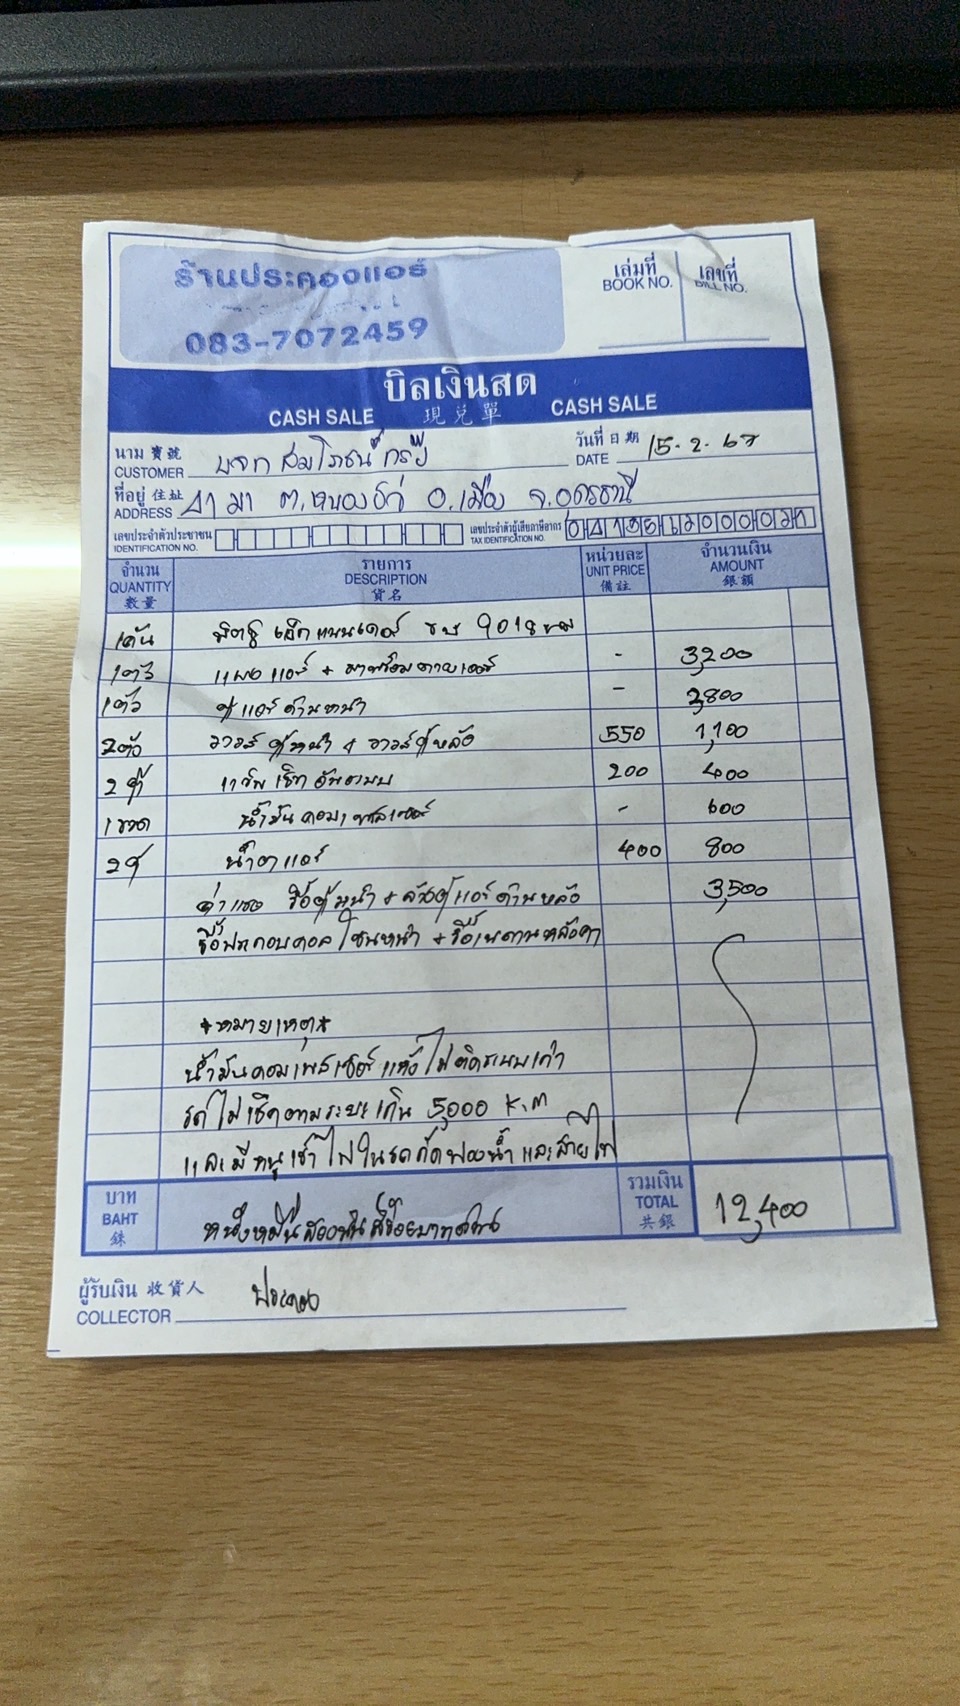 ร้านประคองแอร์
083-7072459
เล่มที่ เลขที่
BOOK NO. BILL NO.
บิลเงินสด
CASH SALE 現兌單 CASH SALE
นาม 寶號 วันที่ 日期
CUSTOMER บจก สมโภชน์ DATE 15-2-67
ที่อยู่ 住址
ADDRESS ต.หนองบัว อ.เมือง จ.อุดรธานี
เลขประจำตัวประชาชน เลขประจำตัวผู้เสียภาษีอากร
IDENTIFICATION NO. TAX IDENTIFICATION NO.
จำนวน รายการ หน่วยละ จำนวนเงิน
QUANTITY DESCRIPTION UNIT PRICE AMOUNT
數量 貨名 備註 銀額
1คัน
1ตัว แผงแอร์ + - 3,200
1ตัว ตู้แอร์ด้านหน้า - 2,800
2ตัว วาวล์ตู้หน้า + วาวล์ตู้หลัง 550 1,100
2 200 400
1ขวด น้ำมันคอมเพรสเซอร์ - 600
2 น้ำยาแอร์ 400 800
ค่าแรง รื้อตู้หน้า + ล้างตู้แอร์ด้านหลัง 3,500
รื้อประกอบคอนโซนหน้า + รื้อเพดานหลังคา
*หมายเหตุ*
น้ำมันคอมเพรสเซอร์แห้งไม่ติดระบบเก่า
รถไม่เช็คตามระยะเกิน 5,000 K.m
และมีหนูเข้าไปในรถกัดฟองน้ำและสายไฟ
บาท รวมเงิน
BAHT หนึ่งหมื่นสองพันสี่ร้อยบาทถ้วน TOTAL 12,400
銖 共銀
ผู้รับเงิน 收貨人 ประคอง
COLLECTOR